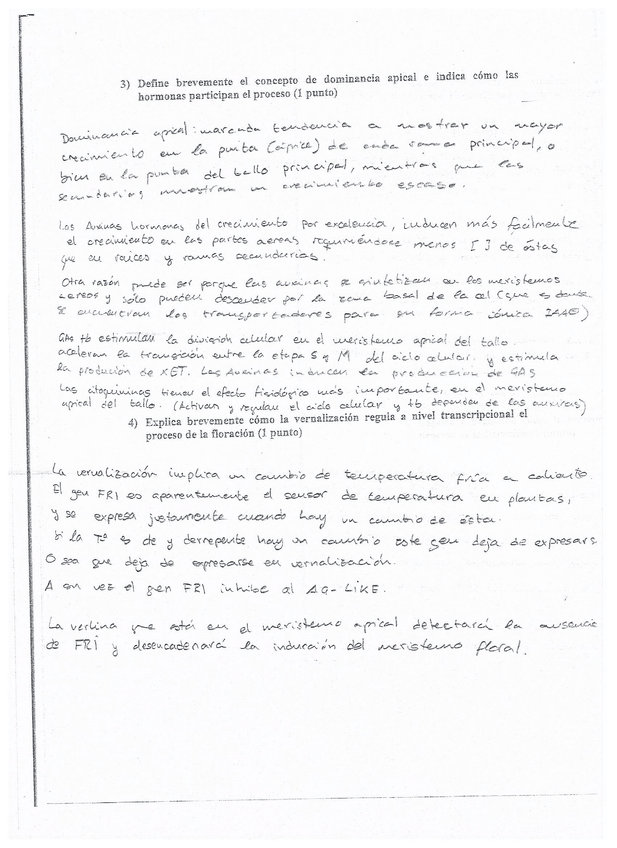 3) Define brevemente el concepto de dominancia apical e indica cómo las
hormonas participan el proceso (1 punto)
Dominancia apical: marcada tendencia a mostrar un mayor
crecimiento en la punta (ápice) de cada rama principal, o
bien en la punta del tallo principal, mientras que las
secundarias muestran un crecimiento escaso.
Las Auxinas hormonas del crecimiento por excelencia, inducen más facilmente
el crecimiento en las partes aereas requiriéndose menos [ ] de éstas
que en raices y ramas secundarias.
Otra razón puede ser porque las auxinas se sintetizan en los meristemos
aereos y sólo pueden descender por la zona basal de la cél (que es donde
se encuentran los transportadores para su forma iónica IAA⊖)
GAs tb estimulan la división celular en el meristemo apical del tallo.
aceleran la transición entre la etapa S y M del ciclo celular. y estimula
la produción de XET. Las Auxinas inducen la producción de GAs
Las citoquininas tienen el efecto fisiológico más importante, en el meristemo
apical del tallo. (Activan y regulan el ciclo celular y tb dependen de las auxinas)
4) Explica brevemente cómo la vernalización regula a nivel transcripcional el
proceso de la floración (1 punto)
La vernalización implica un cambio de temperatura fría a caliente.
El gen FRI es aparentemente el sensor de temperatura en plantas,
y se expresa justamente cuando hay un cambio de ésta.
Si la Tª es de y derrepente hay un cambio este gen deja de expresars
O sea que deja de expresarse en vernalización.
A su vez el gen FRI inhibe al AG-LIKE.
La que está en el meristemo apical detectará la ausencia
de FRI y desencadenará la inducción del meristemo floral.